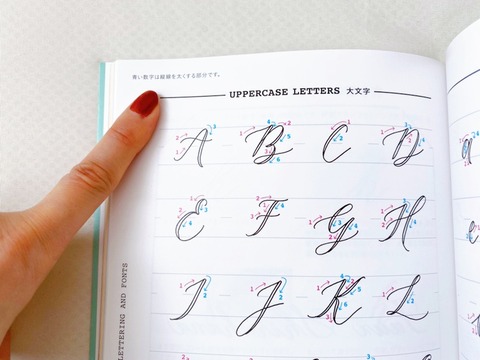 青い数字は縦線を太くする部分です。
UPPERCASE LETTERS 大文字
A B C D
E F G H
I J K L
LETTERING AND FONTS